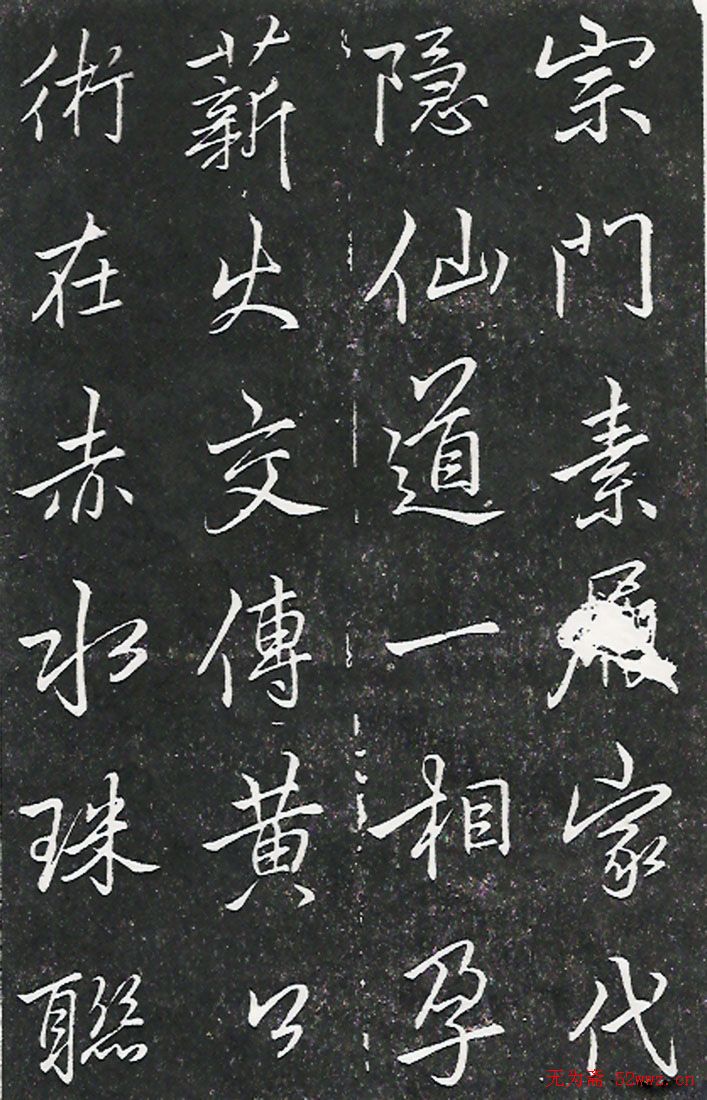 宗門素家代
隐仙道一相孕
薪火交傳黄公
術在赤水珠聯
无为斋 52wwz.cn